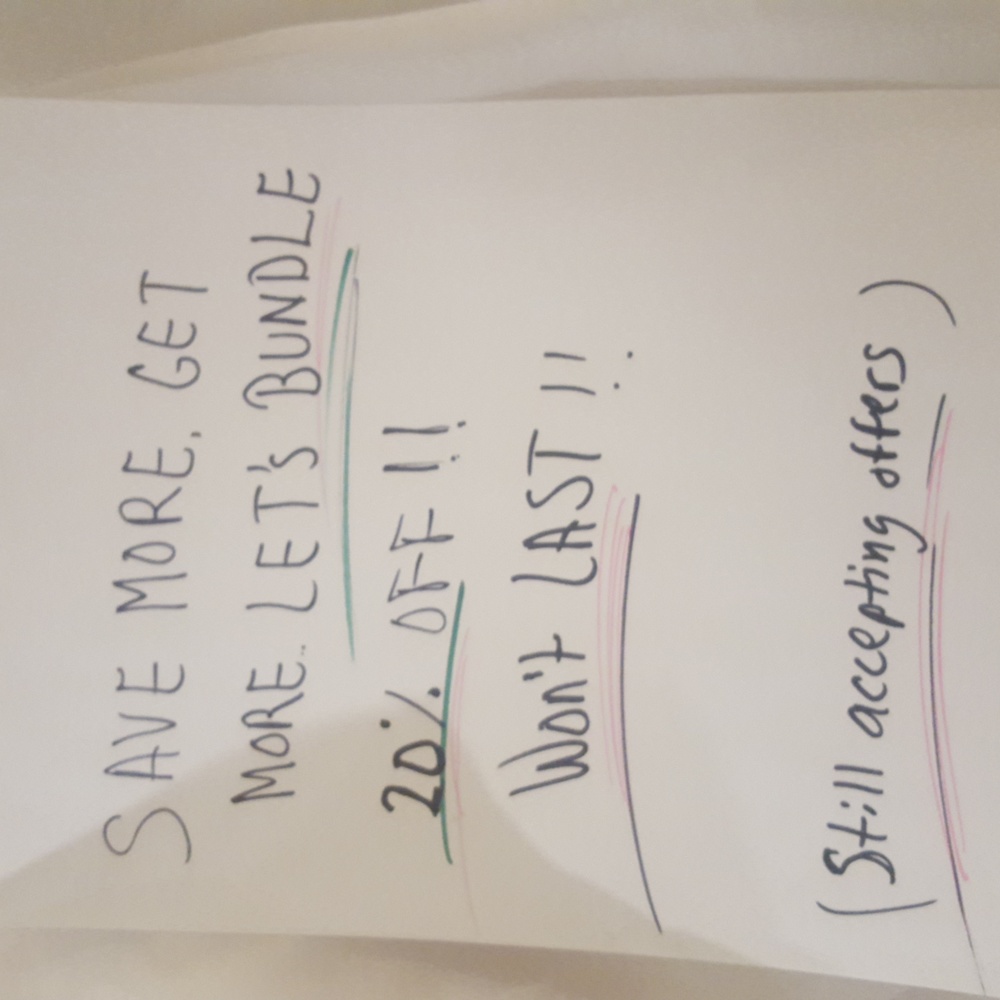 SAVE MORE, GET
MORE.. LET'S BUNDLE
20% OFF !!!
Won't LAST !!
(Still accepting offers)